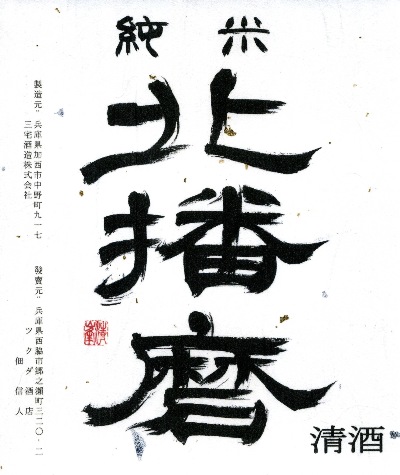 純米
北播磨
清酒
製造元 兵庫県加西市中野町九一七
三宅酒造株式会社
発売元 兵庫県西脇市郷之瀬町三二〇・二
ツクダ酒店
佃信人